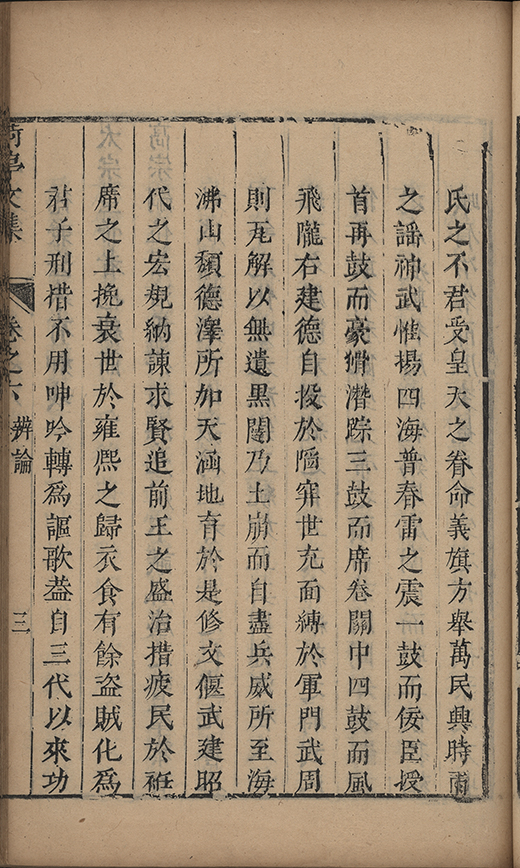 氏之不君受皇天之眷命義旗方舉萬民興時雨
之謡神武惟揚四海普春雷之震一鼓而佞臣授
首再鼓而豪猾潛踪三鼓而席卷關中四鼓而風
飛隴右建德自投於陷穽世充面縛於軍門武周
則瓦解以無遺黒闥乃土崩而自盡兵威所至海
沸山頽德澤所加天涵地育於是修文偃武建昭
代之宏規納諫求賢追前王之盛治措疲民於袵
席之上挽衰世於雍熙之歸衣食有餘盗賊化爲
君子刑措不用呻吟轉爲謳歌葢自三代以來功
亭文集 卷之六 辨論 三
太宗
高宗